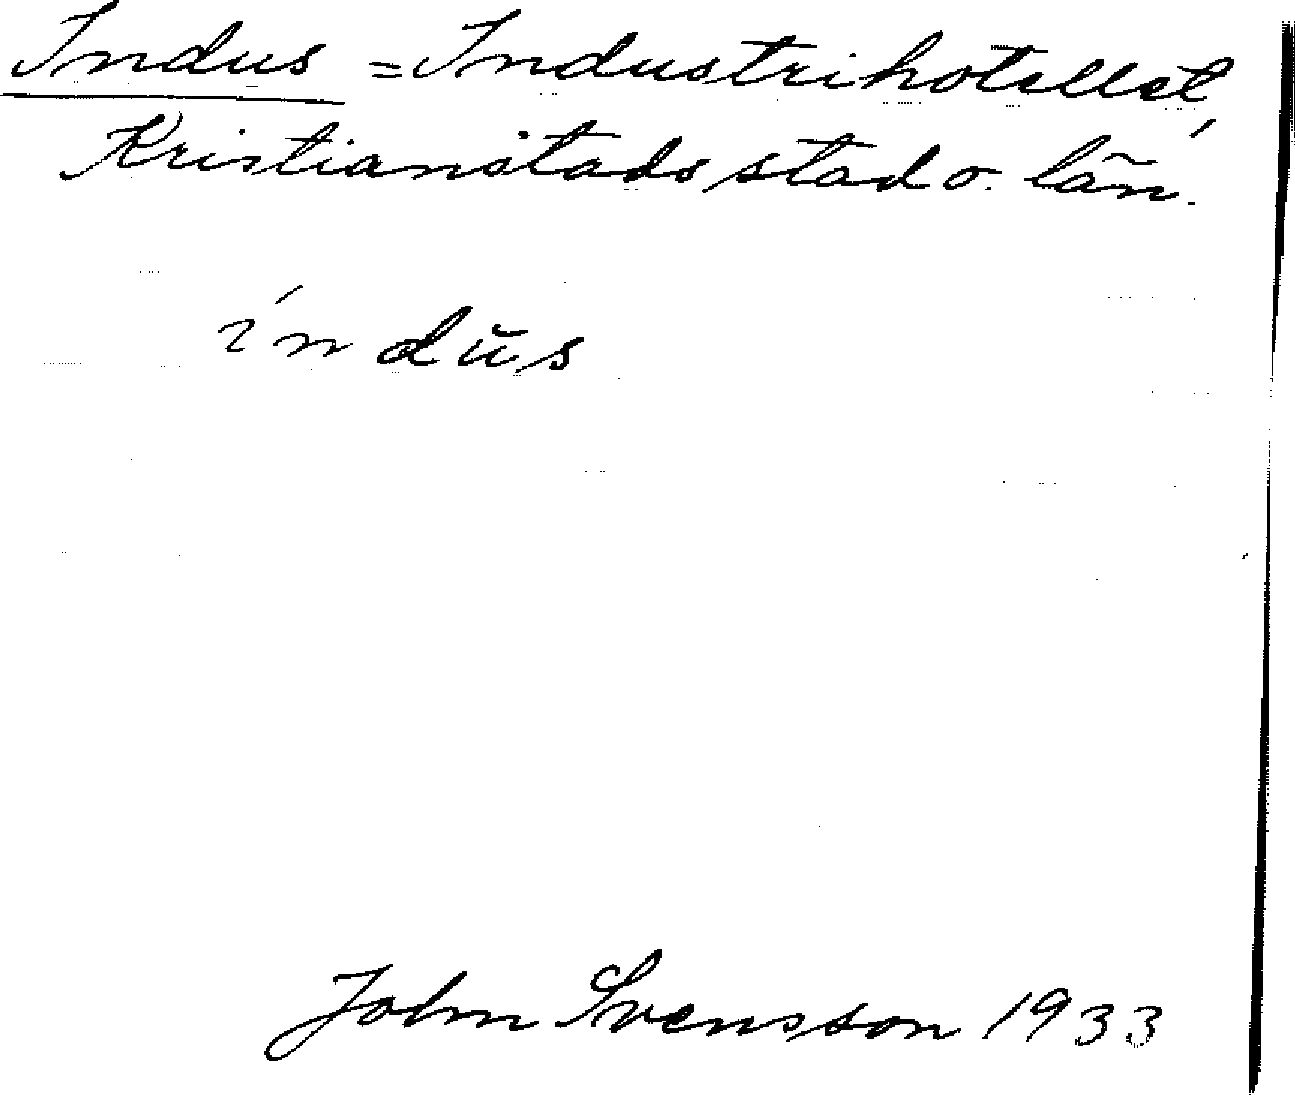 Indus = Industrihotellet,
Kristianstads stad o. län.
índŭs
John Svensson 1933